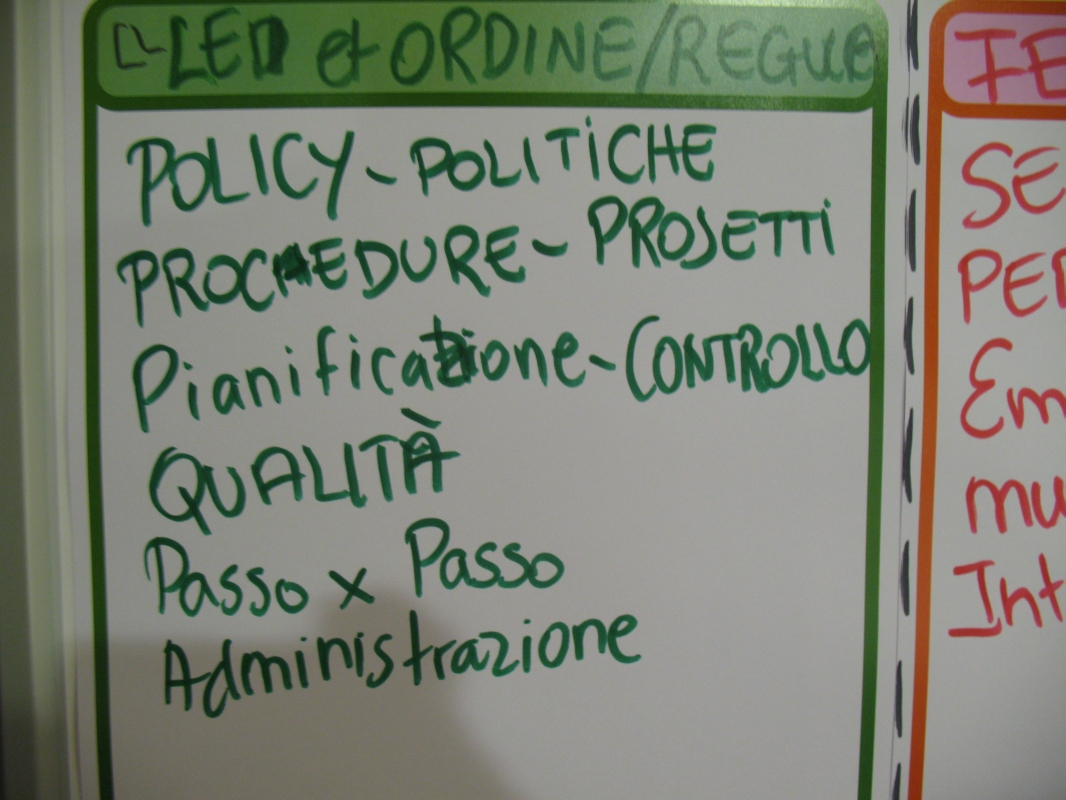 LED et ORDINE/REGUE
POLICY - POLITICHE
PROCEDURE - PROSETTI
Pianificazione - CONTROLLO
QUALITÀ
Passo x Passo
Administrazione
FE
SE
PER
Em
mu
Int